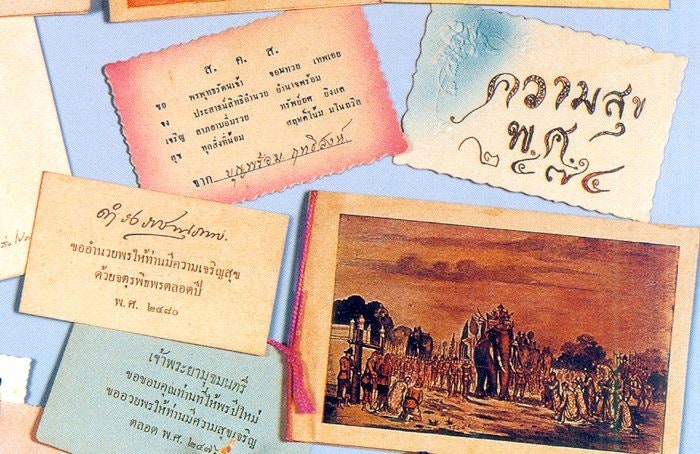 ส. ค. ส.
ขอ พระพุทธรัตนเจ้า จอมหวย เทพเอย
จง ประสาธน์สิทธิอำนวย อำนาจพร้อม
เจริญ ลาภอาบอิ่มรวย ทรัพย์ยศ ยิ่งแล
สุข ทุกสิ่งที่น้อม สฤษดิ์โน้ม มโนถวิล
จาก บุญพร้อม ฤทธิสงน์
ความสุข
พ.ศ.
๒๔๗๔
ขออำนวยพรให้ท่านมีความเจริญสุข
ด้วยจตุรพิธพรตลอดปี
พ.ศ. ๒๔๘๐
เจ้าพระยามุขมนตรี
ขอขอบคุณท่านที่ให้พรปีใหม่
ขออวยพรให้ท่านมีความสุขเจริญ
ตลอด พ.ศ. ๒๔๗๖